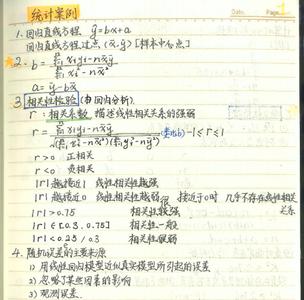 统计案例
Date. Page. 1
1. 回归直线方程 ŷ=bx+a
回归直线方程过点(x̄,ȳ)[样本中心点]
2. b = (Σxiyi-nx̄ȳ)/(Σxi²-nx̄²)
a=ȳ-bx̄
3. 相关性检验(由回归分析)
r:相关系数 描述线性相关关系的强弱
r = (Σxiyi-nx̄ȳ)/√((Σxi²-nx̄²)(Σyi²-nȳ²)) -1≤r≤1
r>0 正相关
r<0 负相关
|r|越接近1 线性相关性越强
|r|越接近0 线性相关性越弱 接近于0时 几乎不存在线性相关关系
|r|>0.75 相关性较强
|r|∈[0.3, 0.75] 相关性一般
相关性很弱
4. 随机误差的主要来源
1) 用线性回归模型近似真实模型所引起的误差
2) 忽略了某些因素的影响
3) 观测误差.